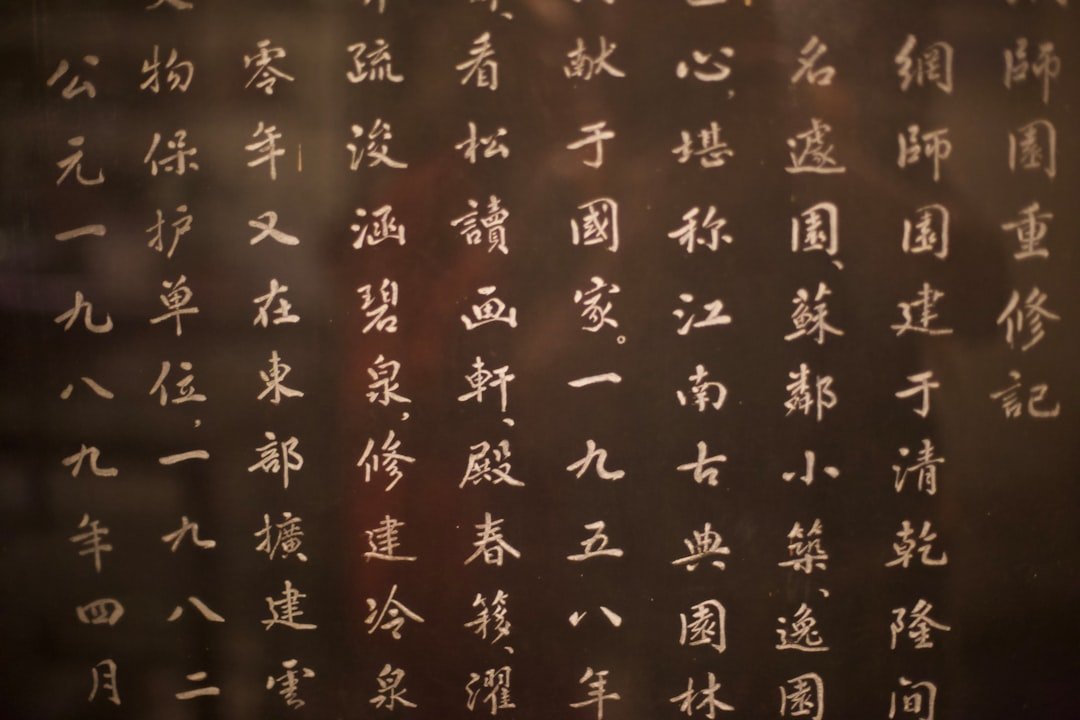 師園重修記
網師園建于清乾隆间
名遽園、蘇鄰小築、逸園
心,堪称江南古典園林
献于國家。一九五八年
看松讀画軒、殿春簃、濯
疏浚涵碧泉,修建冷泉
零年又在東部擴建雲
物保护单位,一九八二
公元一九八九年四月